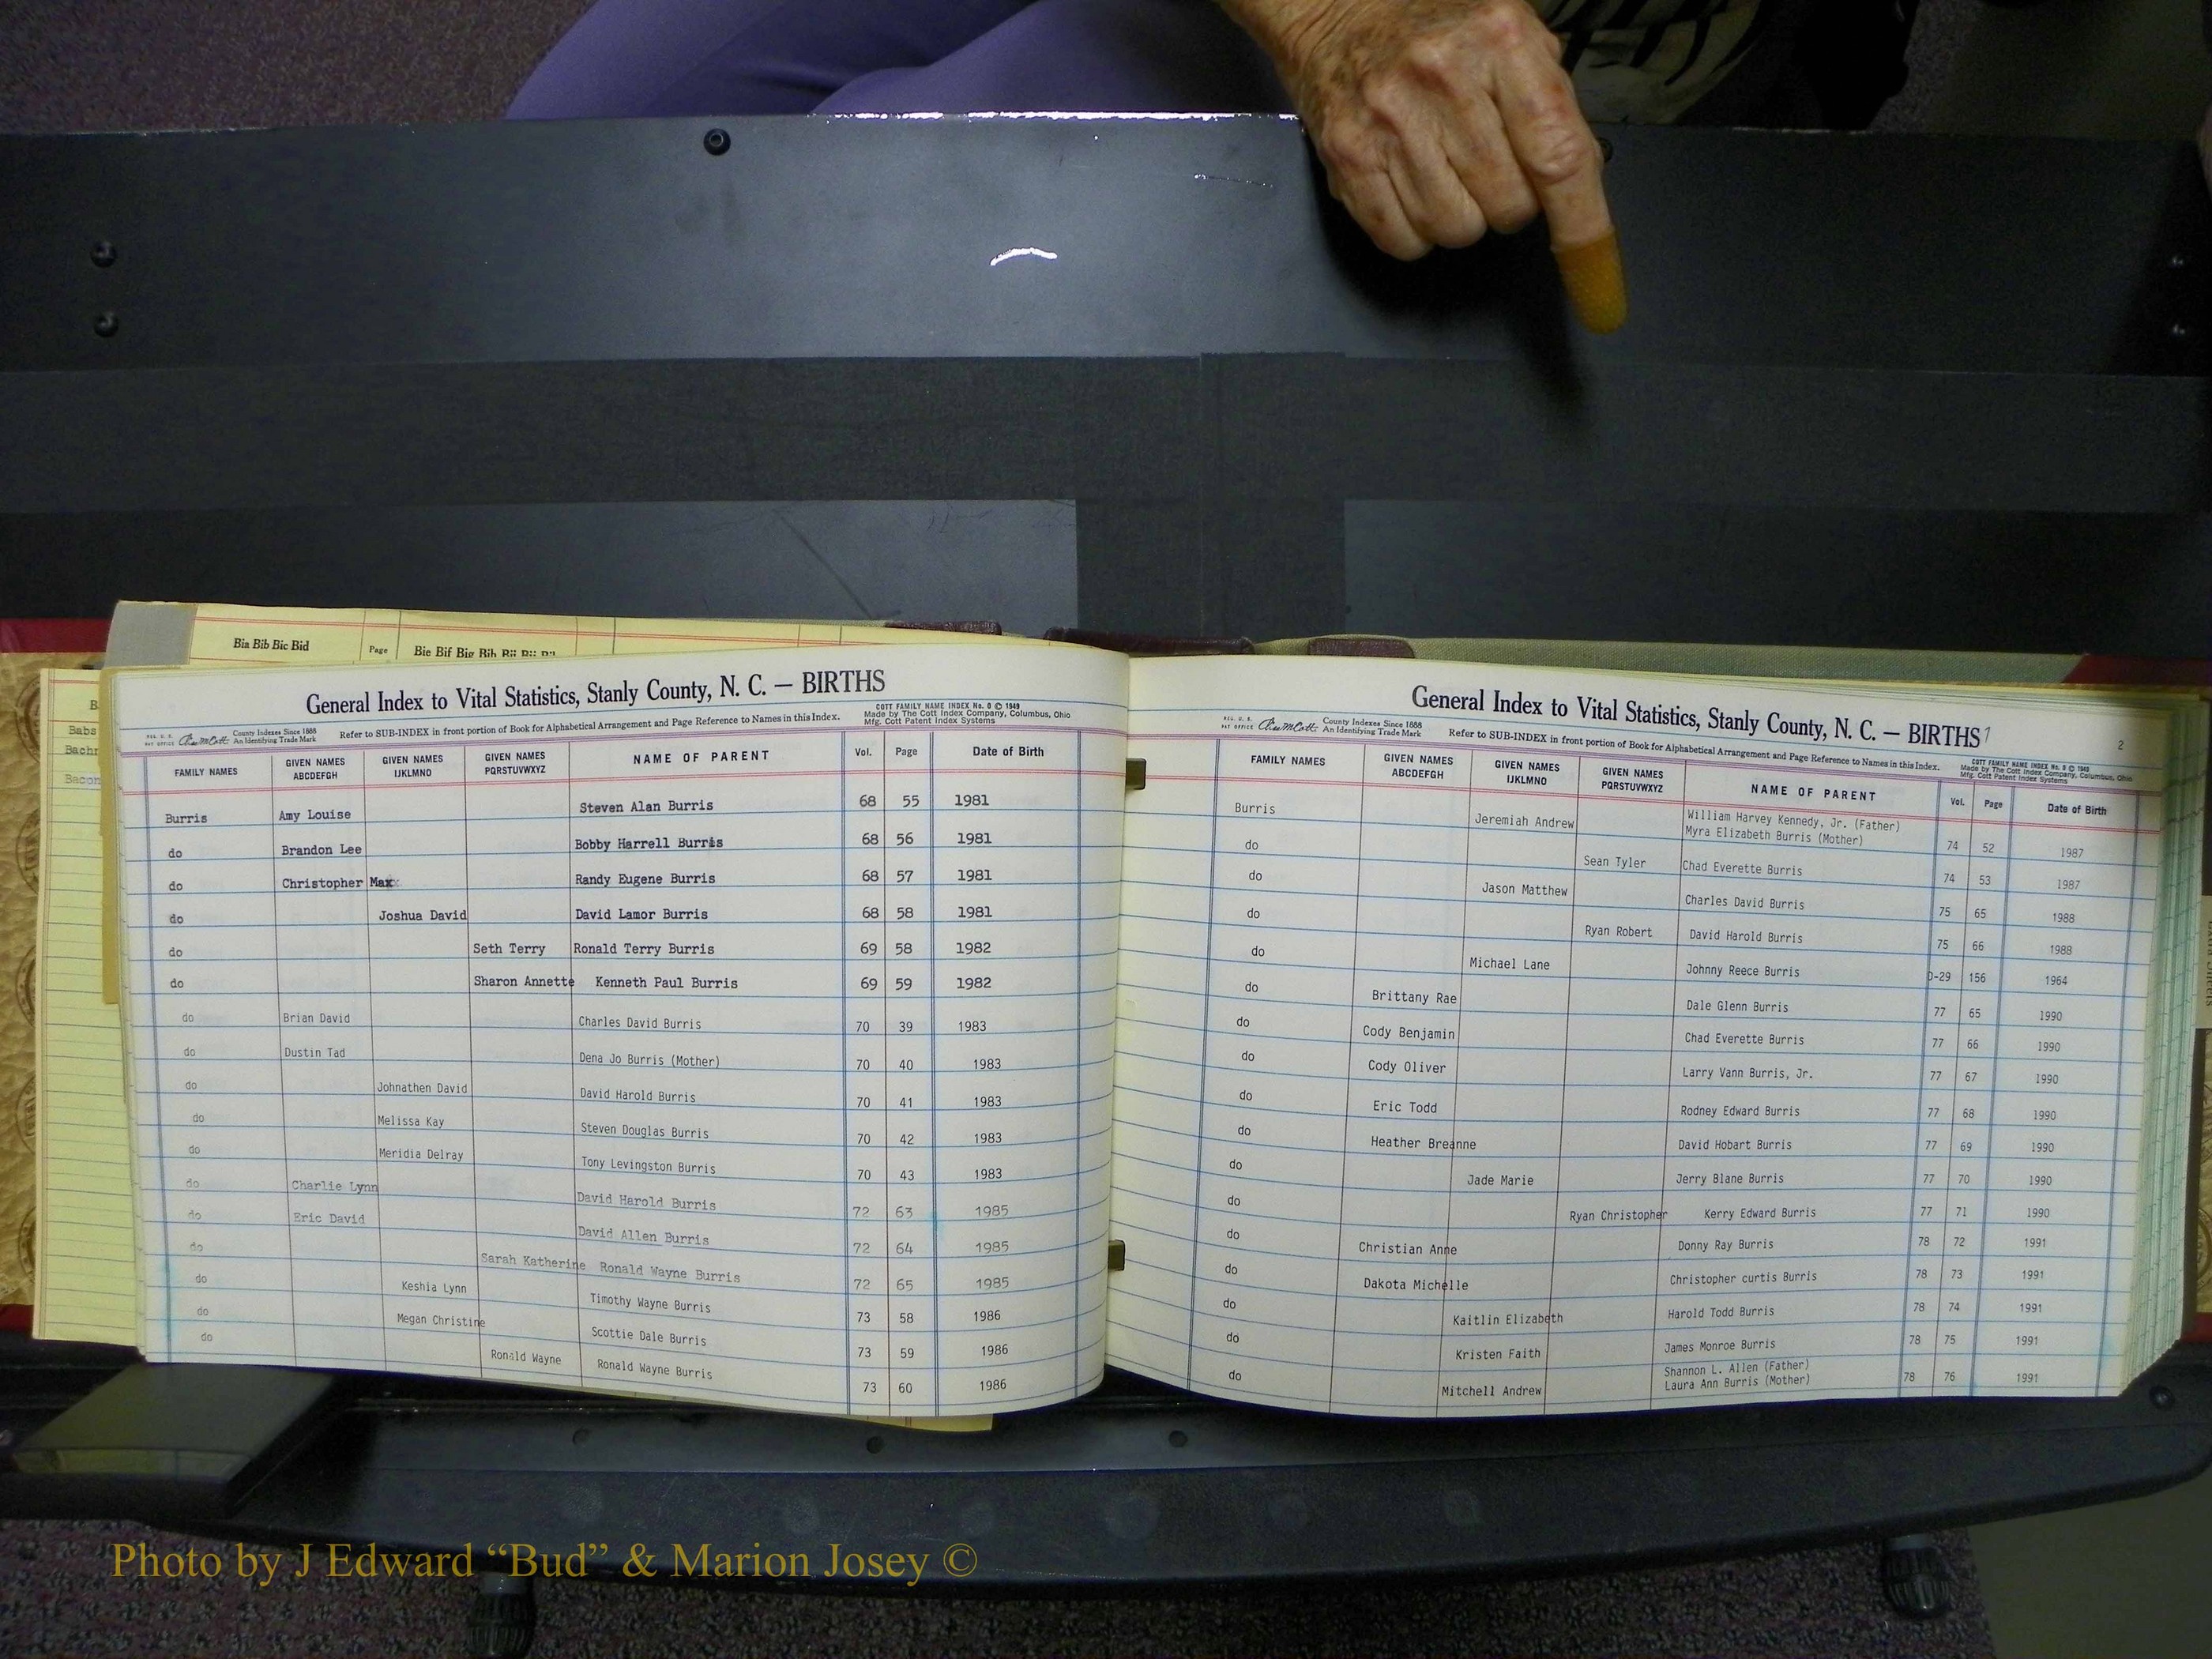 Bia Bib Bic Bid Page Bie Bif Big Bih
Babs
Bachr
Bacon
General Index to Vital Statistics, Stanly County, N. C. — BIRTHS
COTT FAMILY NAME INDEX No. 0 © 1949
Made by The Cott Index Company, Columbus, Ohio
Mfg. Cott Patent Index Systems
County Indexes Since 1888
An Identifying Trade Mark
Refer to SUB-INDEX in front portion of Book for Alphabetical Arrangement and Page Reference to Names in this Index.
FAMILY NAMES GIVEN NAMES ABCDEFGH GIVEN NAMES IJKLMNO GIVEN NAMES PQRSTUVWXYZ NAME OF PARENT Vol. Page Date of Birth
Burris Amy Louise Steven Alan Burris 68 55 1981
do Brandon Lee Bobby Harrell Burris 68 56 1981
do Christopher Max Randy Eugene Burris 68 57 1981
do Joshua David David Lamor Burris 68 58 1981
do Seth Terry Ronald Terry Burris 69 58 1982
do Sharon Annette Kenneth Paul Burris 69 59 1982
do Brian David Charles David Burris 70 39 1983
do Dustin Tad Dena Jo Burris (Mother) 70 40 1983
do Johnathen David David Harold Burris 70 41 1983
do Melissa Kay Steven Douglas Burris 70 42 1983
do Meridia Delray Tony Levingston Burris 70 43 1983
do Charlie Lynn David Harold Burris 72 63 1985
do Eric David David Allen Burris 72 64 1985
do Sarah Katherine Ronald Wayne Burris 72 65 1985
do Keshia Lynn Timothy Wayne Burris 73 58 1986
do Megan Christine Scottie Dale Burris 73 59 1986
do Ronald Wayne Ronald Wayne Burris 73 60 1986
General Index to Vital Statistics, Stanly County, N. C. — BIRTHS
2
County Indexes Since 1888
An Identifying Trade Mark
Refer to SUB-INDEX in front portion of Book for Alphabetical Arrangement and Page Reference to Names in this Index.
COTT FAMILY NAME INDEX No. 0 © 1949
Made by The Cott Index Company, Columbus, Ohio
Mfg. Cott Patent Index Systems
FAMILY NAMES GIVEN NAMES ABCDEFGH GIVEN NAMES IJKLMNO GIVEN NAMES PQRSTUVWXYZ NAME OF PARENT Vol. Page Date of Birth
Burris Jeremiah Andrew William Harvey Kennedy, Jr. (Father)
Myra Elizabeth Burris (Mother) 74 52 1987
do Sean Tyler Chad Everette Burris 74 53 1987
do Jason Matthew Charles David Burris 75 65 1988
do Ryan Robert David Harold Burris 75 66 1988
do Michael Lane Johnny Reece Burris D-29 156 1964
do Brittany Rae Dale Glenn Burris 77 65 1990
do Cody Benjamin Chad Everette Burris 77 66 1990
do Cody Oliver Larry Vann Burris, Jr. 77 67 1990
do Eric Todd Rodney Edward Burris 77 68 1990
do Heather Breanne David Hobart Burris 77 69 1990
do Jade Marie Jerry Blane Burris 77 70 1990
do Ryan Christopher Kerry Edward Burris 77 71 1990
do Christian Anne Donny Ray Burris 78 72 1991
do Dakota Michelle Christopher curtis Burris 78 73 1991
do Kaitlin Elizabeth Harold Todd Burris 78 74 1991
do Kristen Faith James Monroe Burris 78 75 1991
do Mitchell Andrew Shannon L. Allen (Father)
Laura Ann Burris (Mother) 78 76 1991
Photo by J Edward “Bud” & Marion Josey ©